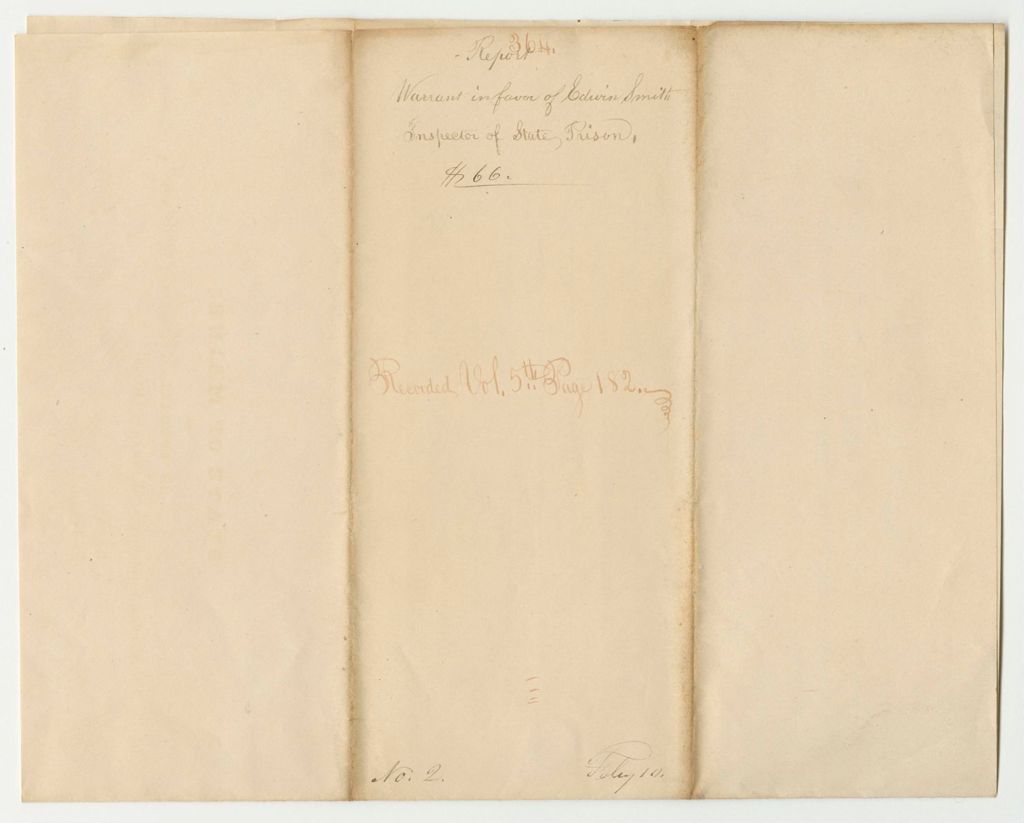 364.
- Report
Warrant in favor of Edwin Smith
Inspector of State Prison,
$66.
Recorded Vol. 5th Page 182.
No. 2. Feby 10.